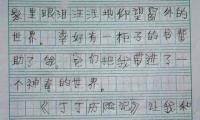 里眼泪汪汪地仰望窗外的
世界。幸好有一柜子的书帮
助了我，它们把我带进了一
个神奇的世界。
《丁丁历险记》让我和